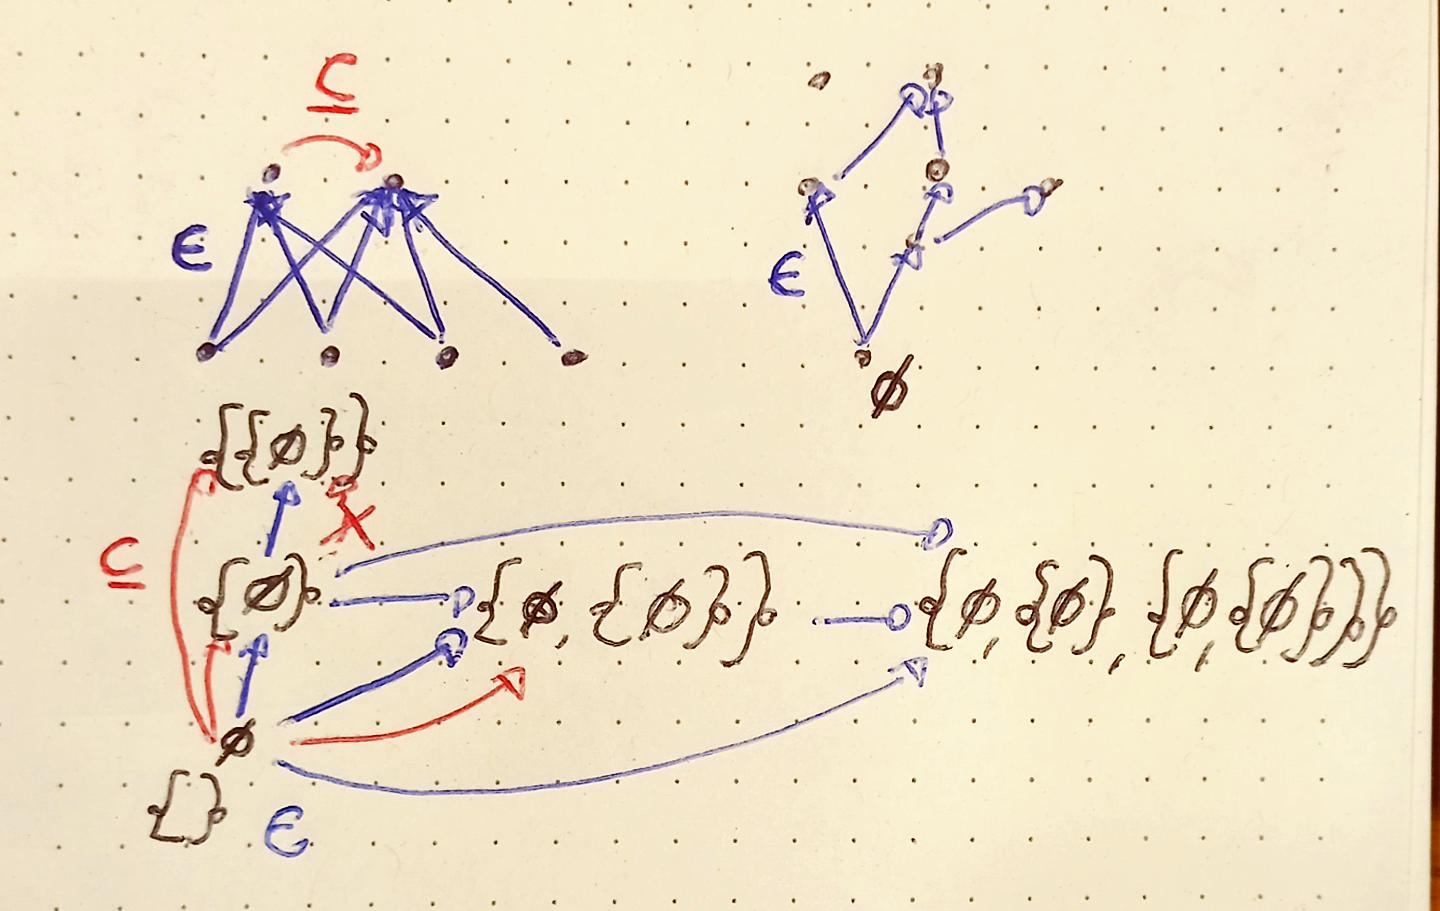 ⊆
∈
∈
∅
{{∅}}
⊆
{∅} {∅, {∅}} {∅, {∅}, {∅, {∅}}}
∅
{}
∈